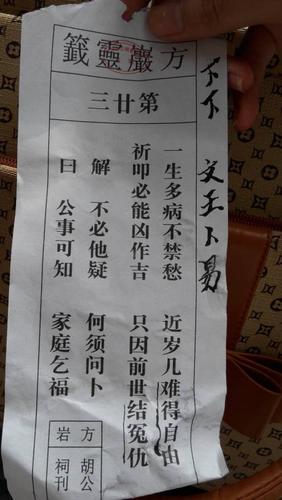 下下 文王卜易
方巖靈籤
第廿三
一生多病不禁愁 近岁几难得自由
祈叩必能凶作吉 只因前世结冤仇
解 不必他疑 何须问卜
曰 公事可知 家庭乞福
方岩
胡公祠刊